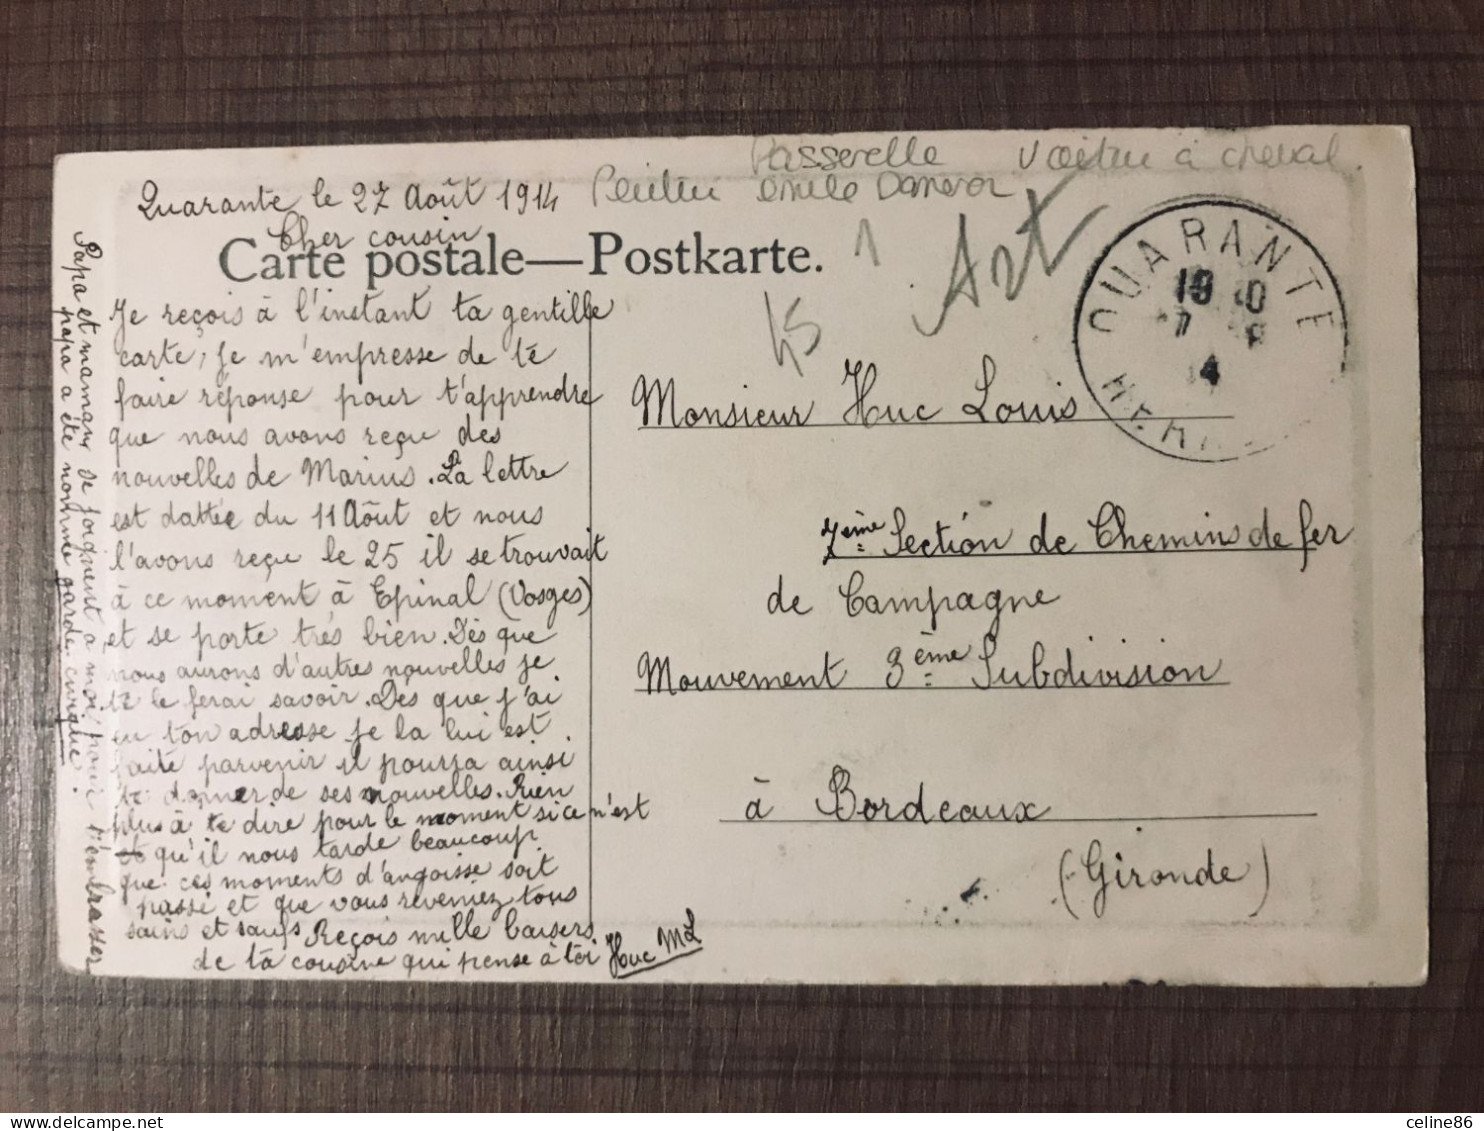 Passerelle voiture à cheval.
Quarante le 27 Août 1914 Peintre emile
Cher cousin
Carte postale—Postkarte.
1
Art
45
Je reçois à l'instant ta gentille
carte, je m'empresse de té
faire réponse pour t'apprendre
que nous avons reçu des
nouvelles de Marius. La lettre
est dattée du 11 Août et nous
l'avons reçu le 25 il se trouvait
à ce moment à Epinal (Vosges)
et se porte trés bien. Dès que
nous aurons d'autres nouvelles je
té le ferai savoir. Des que j'ai
eu ton adresse je la lui est
faite parvenir il pourra ainsi
te donner de ses nouvelles. Rien
plus à te dire pour le moment si ce n'est
qu'il nous tarde beaucoup
que ces moments d'angoisse soit
passé et que vous reveniez tous
sains et saufs Reçois mille baisers
de ta cousine qui pense à toi Huc ML
Papa et maman se joignent a moi pour t'embrasser
papa a été nommé garde civique.
QUARANTE
HER
Monsieur Huc Louis
7ème Section de Chemins de fer
de Campagne
Mouvement 3ème Subdivision
à Bordeaux
(Gironde)
delcampe.net
celine86